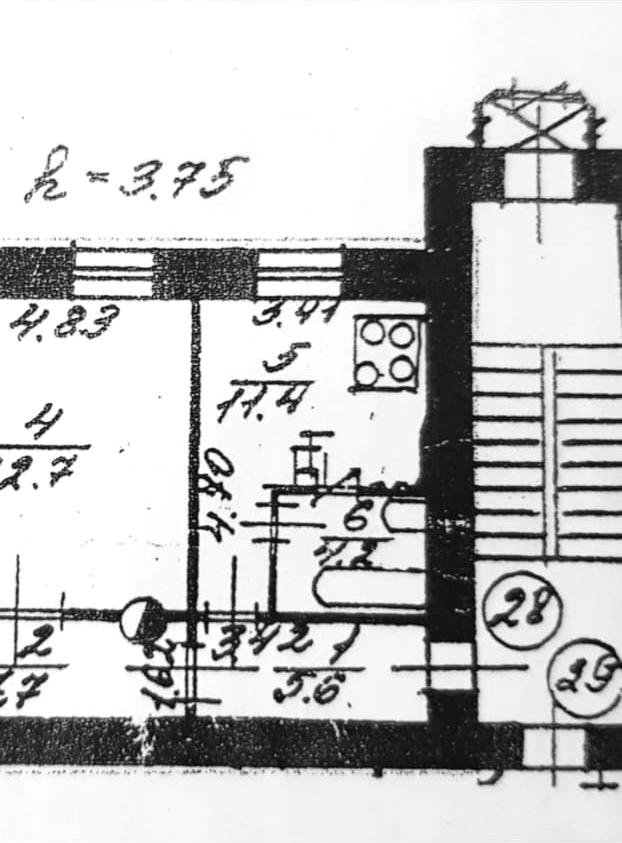 h = 3.75
4.83
3.41
5
11.4
4
2.7
4.70
6
4.2
28
2
.7
1.62
3.42
1
5.6
29